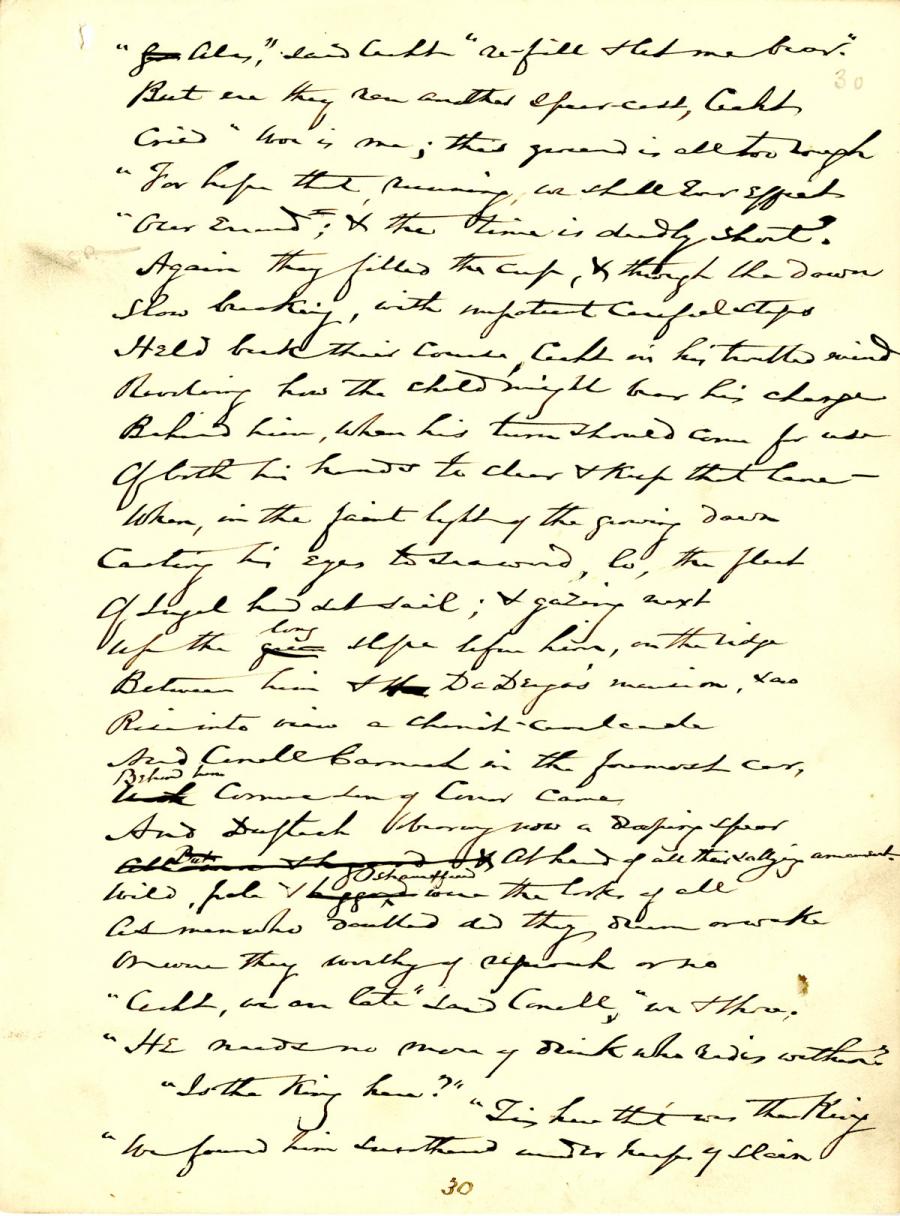 "Alas," said Cecht "re-fill & let me bear."
30
But ere they ran another spear-cast, Cecht
Cried "Woe is me; this ground is all too rough
"For hope that, running, we shall ever effect
"Our Errand; & the time is deadly short".
Again they filled the cup, & through the dawn
Slow breaking, with impatient careful steps
Held back their course, Cecht in his troubled mind
Revolving how the child might bear his charge
Behind him, when his turn should come for use
Of both his hands to clear & keep that lane—
When, in the faint light of the growing dawn
Casting his eyes to seaward, lo, the fleet
Of Ingcel had set sail; & gazing next
long
Up the slope before him, on the ridge
Between him & Da Derga's mansion, saw
Rise into view a chariot-cavalcade
And Conall Carnach in the foremost car,
Behind him
Cormac son of Conor came
And Duftach bearing now a drooping spear
But
At head of all their sallying armament.
Oshauffied
Wild, pale & were the looks of all
As men who doubted did they dream or wake
Or were they worthy of reproach or no
"Cecht, we are late" said Conall, "we & thou.
"He needs no more of drink who rides within."
"Is the King here?"
"Tis here that was the King
"We found him smothered under heaps of slain
30